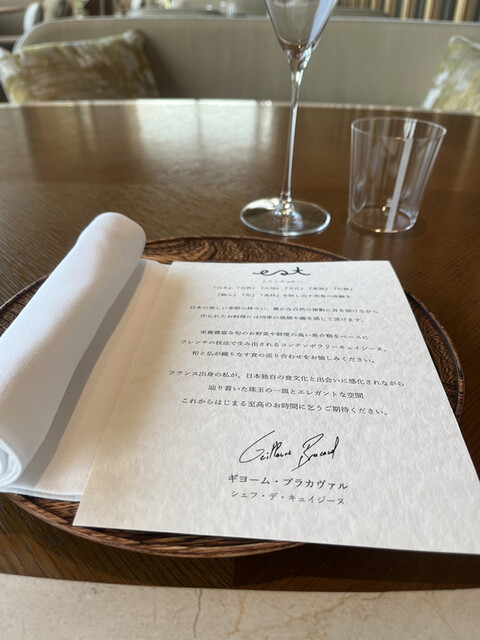 est
『日本』『自然』『大地』『文化』『豊穣』『伝統』
『職人』『旬』『食材』を映し出す美食の体験を
日本の美しい季節の移ろい、豊かな自然の律動に耳を傾けながら
作られたお料理には四季の風情や趣を感じて頂けます。
栄養豊富な旬のお野菜や鮮度の高い魚介類をベースに
フレンチの技法で生み出されるコンテンポラリーキュイジーヌ。
和と仏が織りなす食の巡り合わせをお愉しみください。
フランス出身の私が、日本独自の食文化と出会いに感化されながら
辿り着いた珠玉の一皿とエレガントな空間
これからはじまる至高のお時間に乞うご期待ください。
Guillaume Bracaval
ギヨーム・ブラカヴァル
シェフ・デ・キュイジーヌ